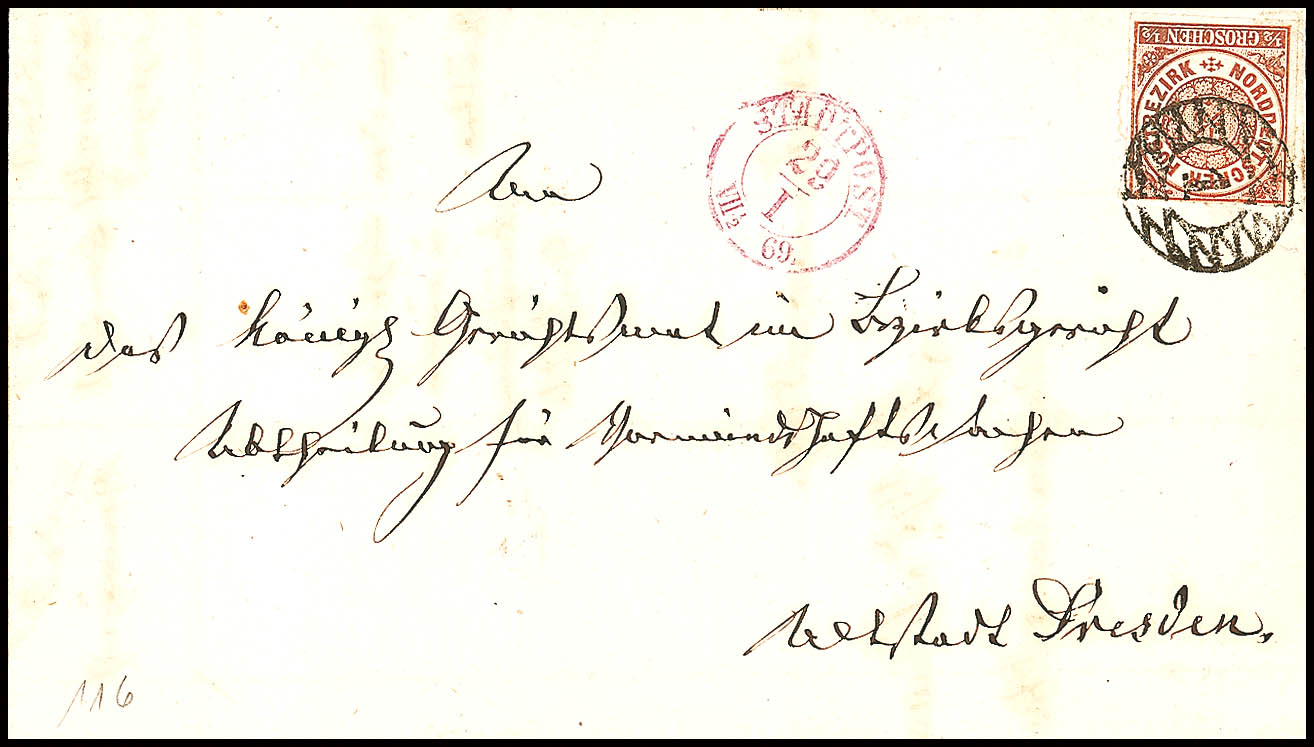 ½ GROSCHEN ½
NORDDEUTSCHER POSTBEZIRK
STADTPOST
29
I
69.
VII½
An
das Königl Gerichtsamt im Bezirksgericht
Abtheilung für Vormundschaftssachen
Altstadt Dresden.
116